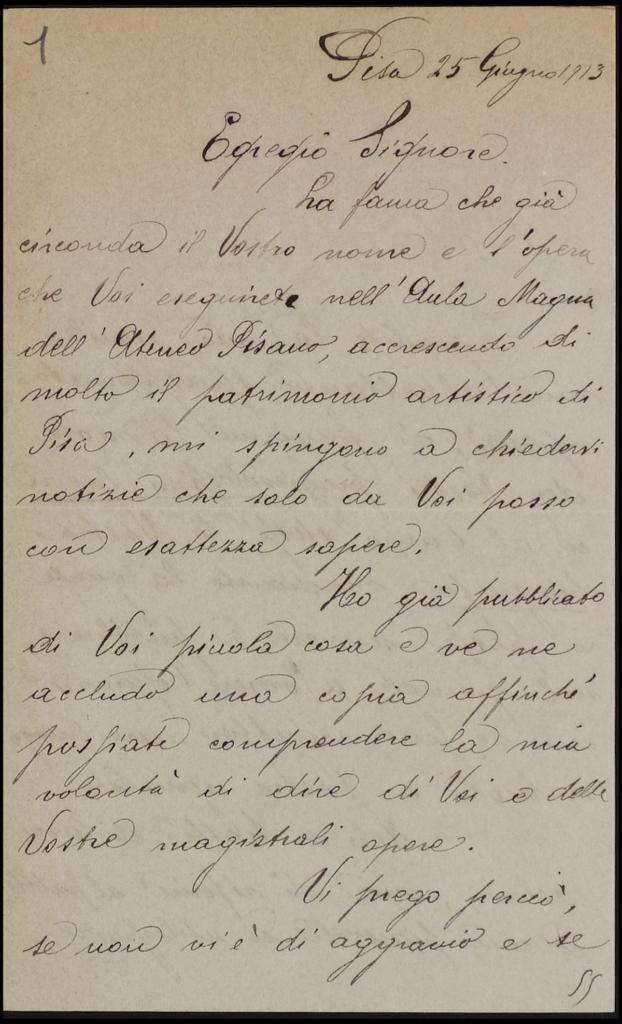 1
Pisa 25 Giugno 1913
Egregio Signore.
La fama che già
circonda il Vostro nome e l'opera
che Voi eseguirete nell'Aula Magna
dell'Ateneo Pisano, accrescendo di
molto il patrimonio artistico di
Pisa, mi spingono a chiedervi
notizie che solo da Voi posso
con esattezza sapere.
Ho già pubblicato
di Voi piccola cosa e ve ne
accludo una copia affinché
possiate comprendere la mia
volontà di dire di Voi e delle
Vostre magistrali opere.
Vi prego perciò,
se non vi è di aggravio e se